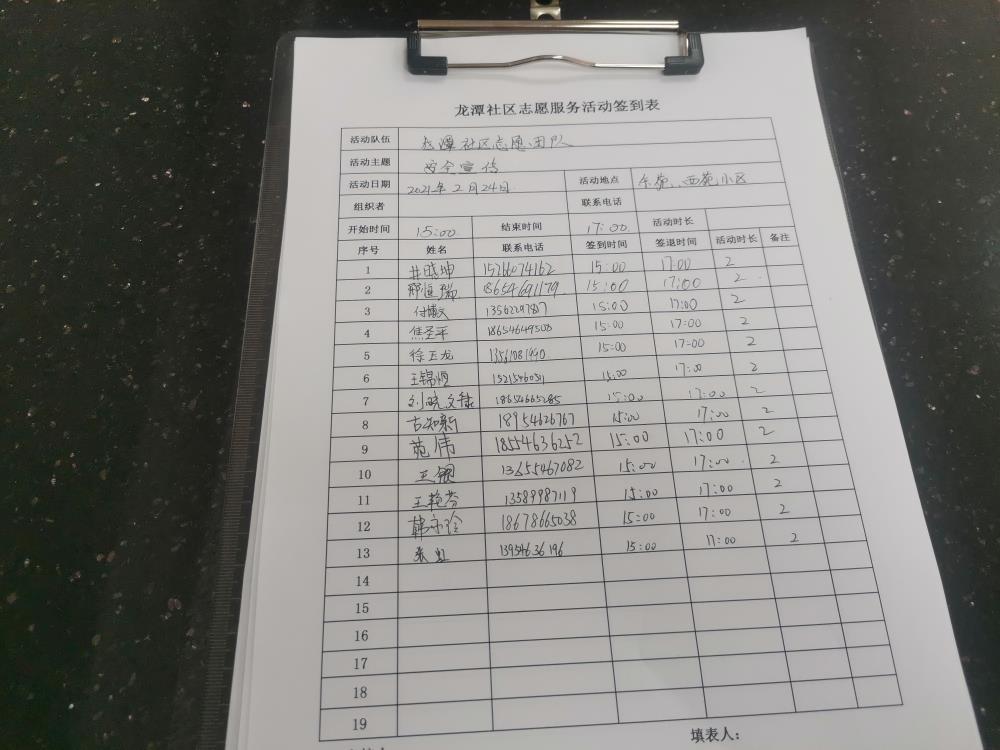 龙潭社区志愿服务活动签到表
活动队伍 龙潭社区志愿团队
活动主题 安全宣传
活动日期 2021年2月24日 活动地点 东苑、西苑小区
组织者 联系电话
开始时间 15:00 结束时间 17:00 活动时长
序号 姓名 联系电话 签到时间 签退时间 活动时长 备注
1 井晓坤 15266074162 15:00 17:00 2
2 邢恒瑞 18654691179 15:00 17:00 2
3 付博文 13562297817 15:00 17:00 2
4 焦圣平 18654649508 15:00 17:00 2
5 徐玉龙 15:00 17:00 2
6 王锦恒 15:00 17:00 2
7 刘晓文 18654665285 15:00 17:00 2
8 古知新 18954626767 15:00 17:00 2
9 苑伟 18554636252 15:00 17:00 2
10 王 13655467082 15:00 17:00 2
11 王艳芬 13589987119 15:00 17:00 2
12 韩永玲 18678665038 15:00 17:00 2
13 张虹 13954636196 15:00 17:00 2
14
15
16
17
18
19
填表人: